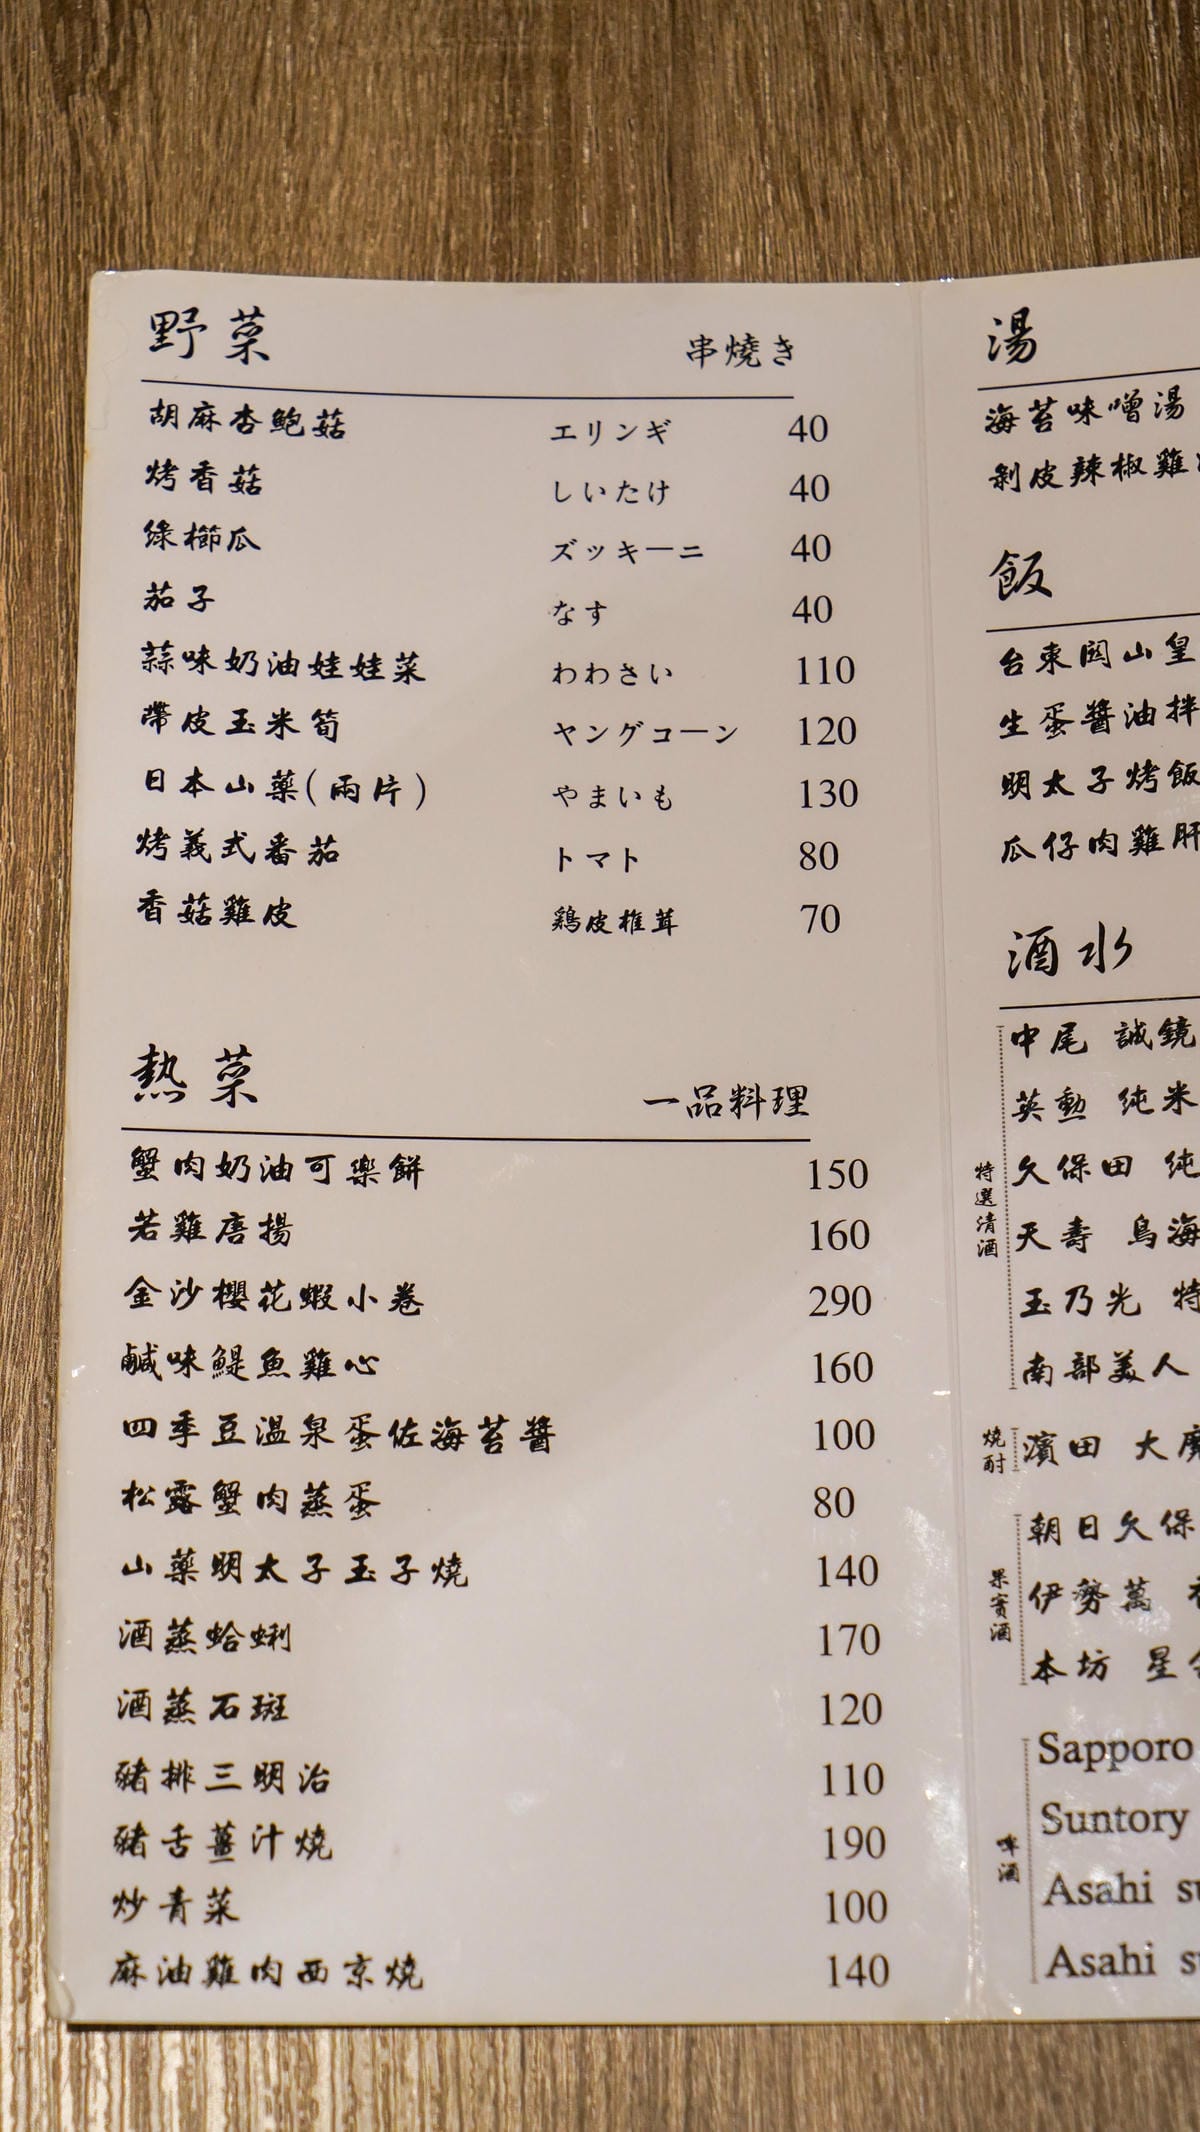 野菜 串燒き
胡麻杏鮑菇 エリンギ 40
烤香菇 しいたけ 40
綠櫛瓜 ズッキーニ 40
茄子 なす 40
蒜味奶油娃娃菜 わわさい 110
帶皮玉米筍 ヤングコーン 120
日本山藥(兩片) やまいも 130
烤義式番茄 トマト 80
香菇雞皮 鶏皮椎茸 70
熱菜 一品料理
蟹肉奶油可樂餅 150
若雞唐揚 160
金沙櫻花蝦小卷 290
鹹味鯷魚雞心 160
四季豆溫泉蛋佐海苔醬 100
松露蟹肉蒸蛋 80
山藥明太子玉子燒 140
酒蒸蛤蜊 170
酒蒸石斑 120
豬排三明治 110
豬舌薑汁燒 190
炒青菜 100
麻油雞肉西京燒 140
湯
海苔味噌湯
剝皮辣椒雞
飯
台東關山皇
生蛋醬油拌
明太子烤飯
瓜仔肉雞肝
酒水
特選清酒
中尾 誠鏡
英勳 純米
久保田 純
天壽 鳥海
玉乃光 特
南部美人
燒酎
濱田 大魔
果實酒
朝日久保
伊勢萬
本坊 星
啤酒
Sapporo
Suntory
Asahi su
Asahi su